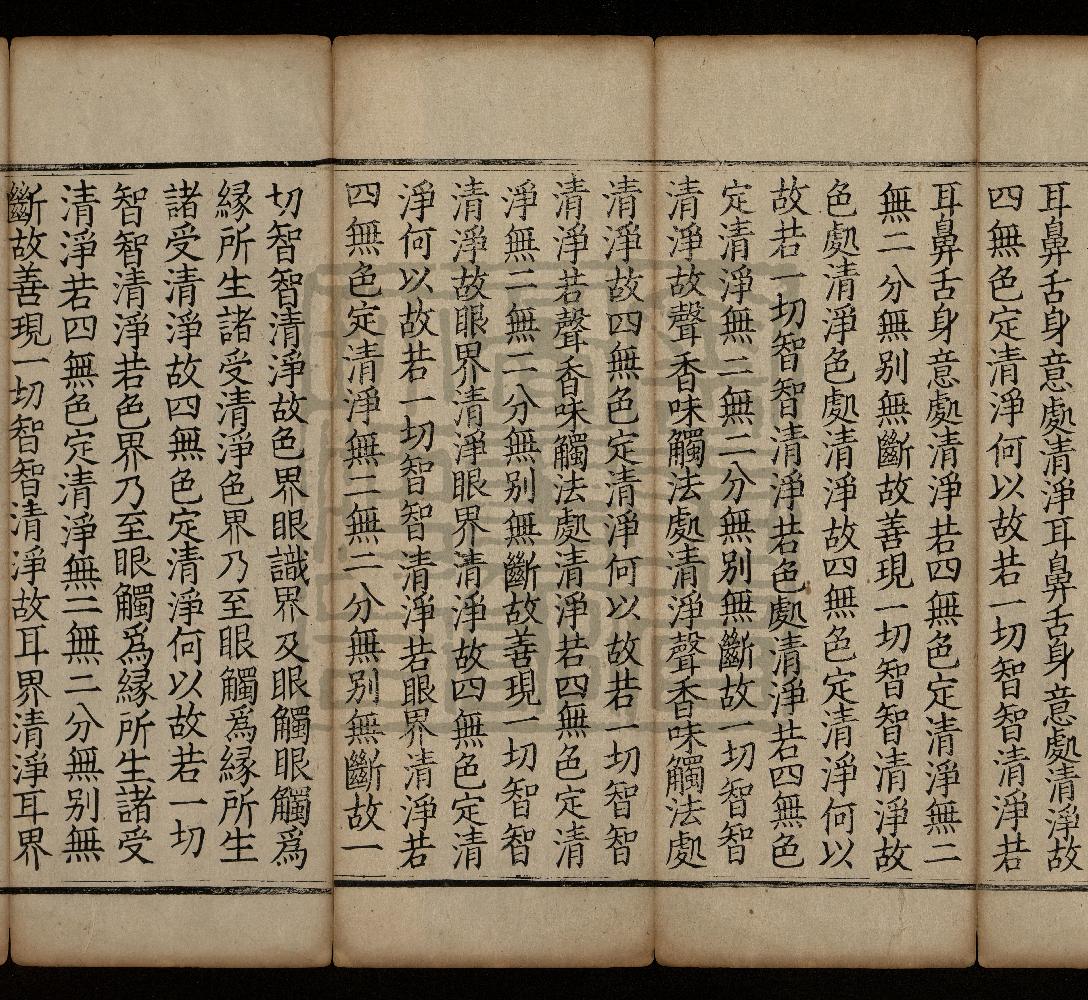 耳鼻舌身意處清淨耳鼻舌身意處清淨故
四無色定清淨何以故若一切智智清淨若
耳鼻舌身意處清淨若四無色定清淨無二
無二分無別無斷故善現一切智智清淨故
色處清淨色處清淨故四無色定清淨何以
故若一切智智清淨若色處清淨若四無色
定清淨無二無二分無別無斷故一切智智
清淨故聲香味觸法處清淨聲香味觸法處
清淨故四無色定清淨何以故若一切智智
清淨若聲香味觸法處清淨若四無色定清
淨無二無二分無別無斷故善現一切智智
清淨故眼界清淨眼界清淨故四無色定清
淨何以故若一切智智清淨若眼界清淨若
四無色定清淨無二無二分無別無斷故一
切智智清淨故色界眼識界及眼觸眼觸爲
緣所生諸受清淨色界乃至眼觸爲緣所生
諸受清淨故四無色定清淨何以故若一切
智智清淨若色界乃至眼觸爲緣所生諸受
清淨若四無色定清淨無二無二分無別無
斷故善現一切智智清淨故耳界清淨耳界